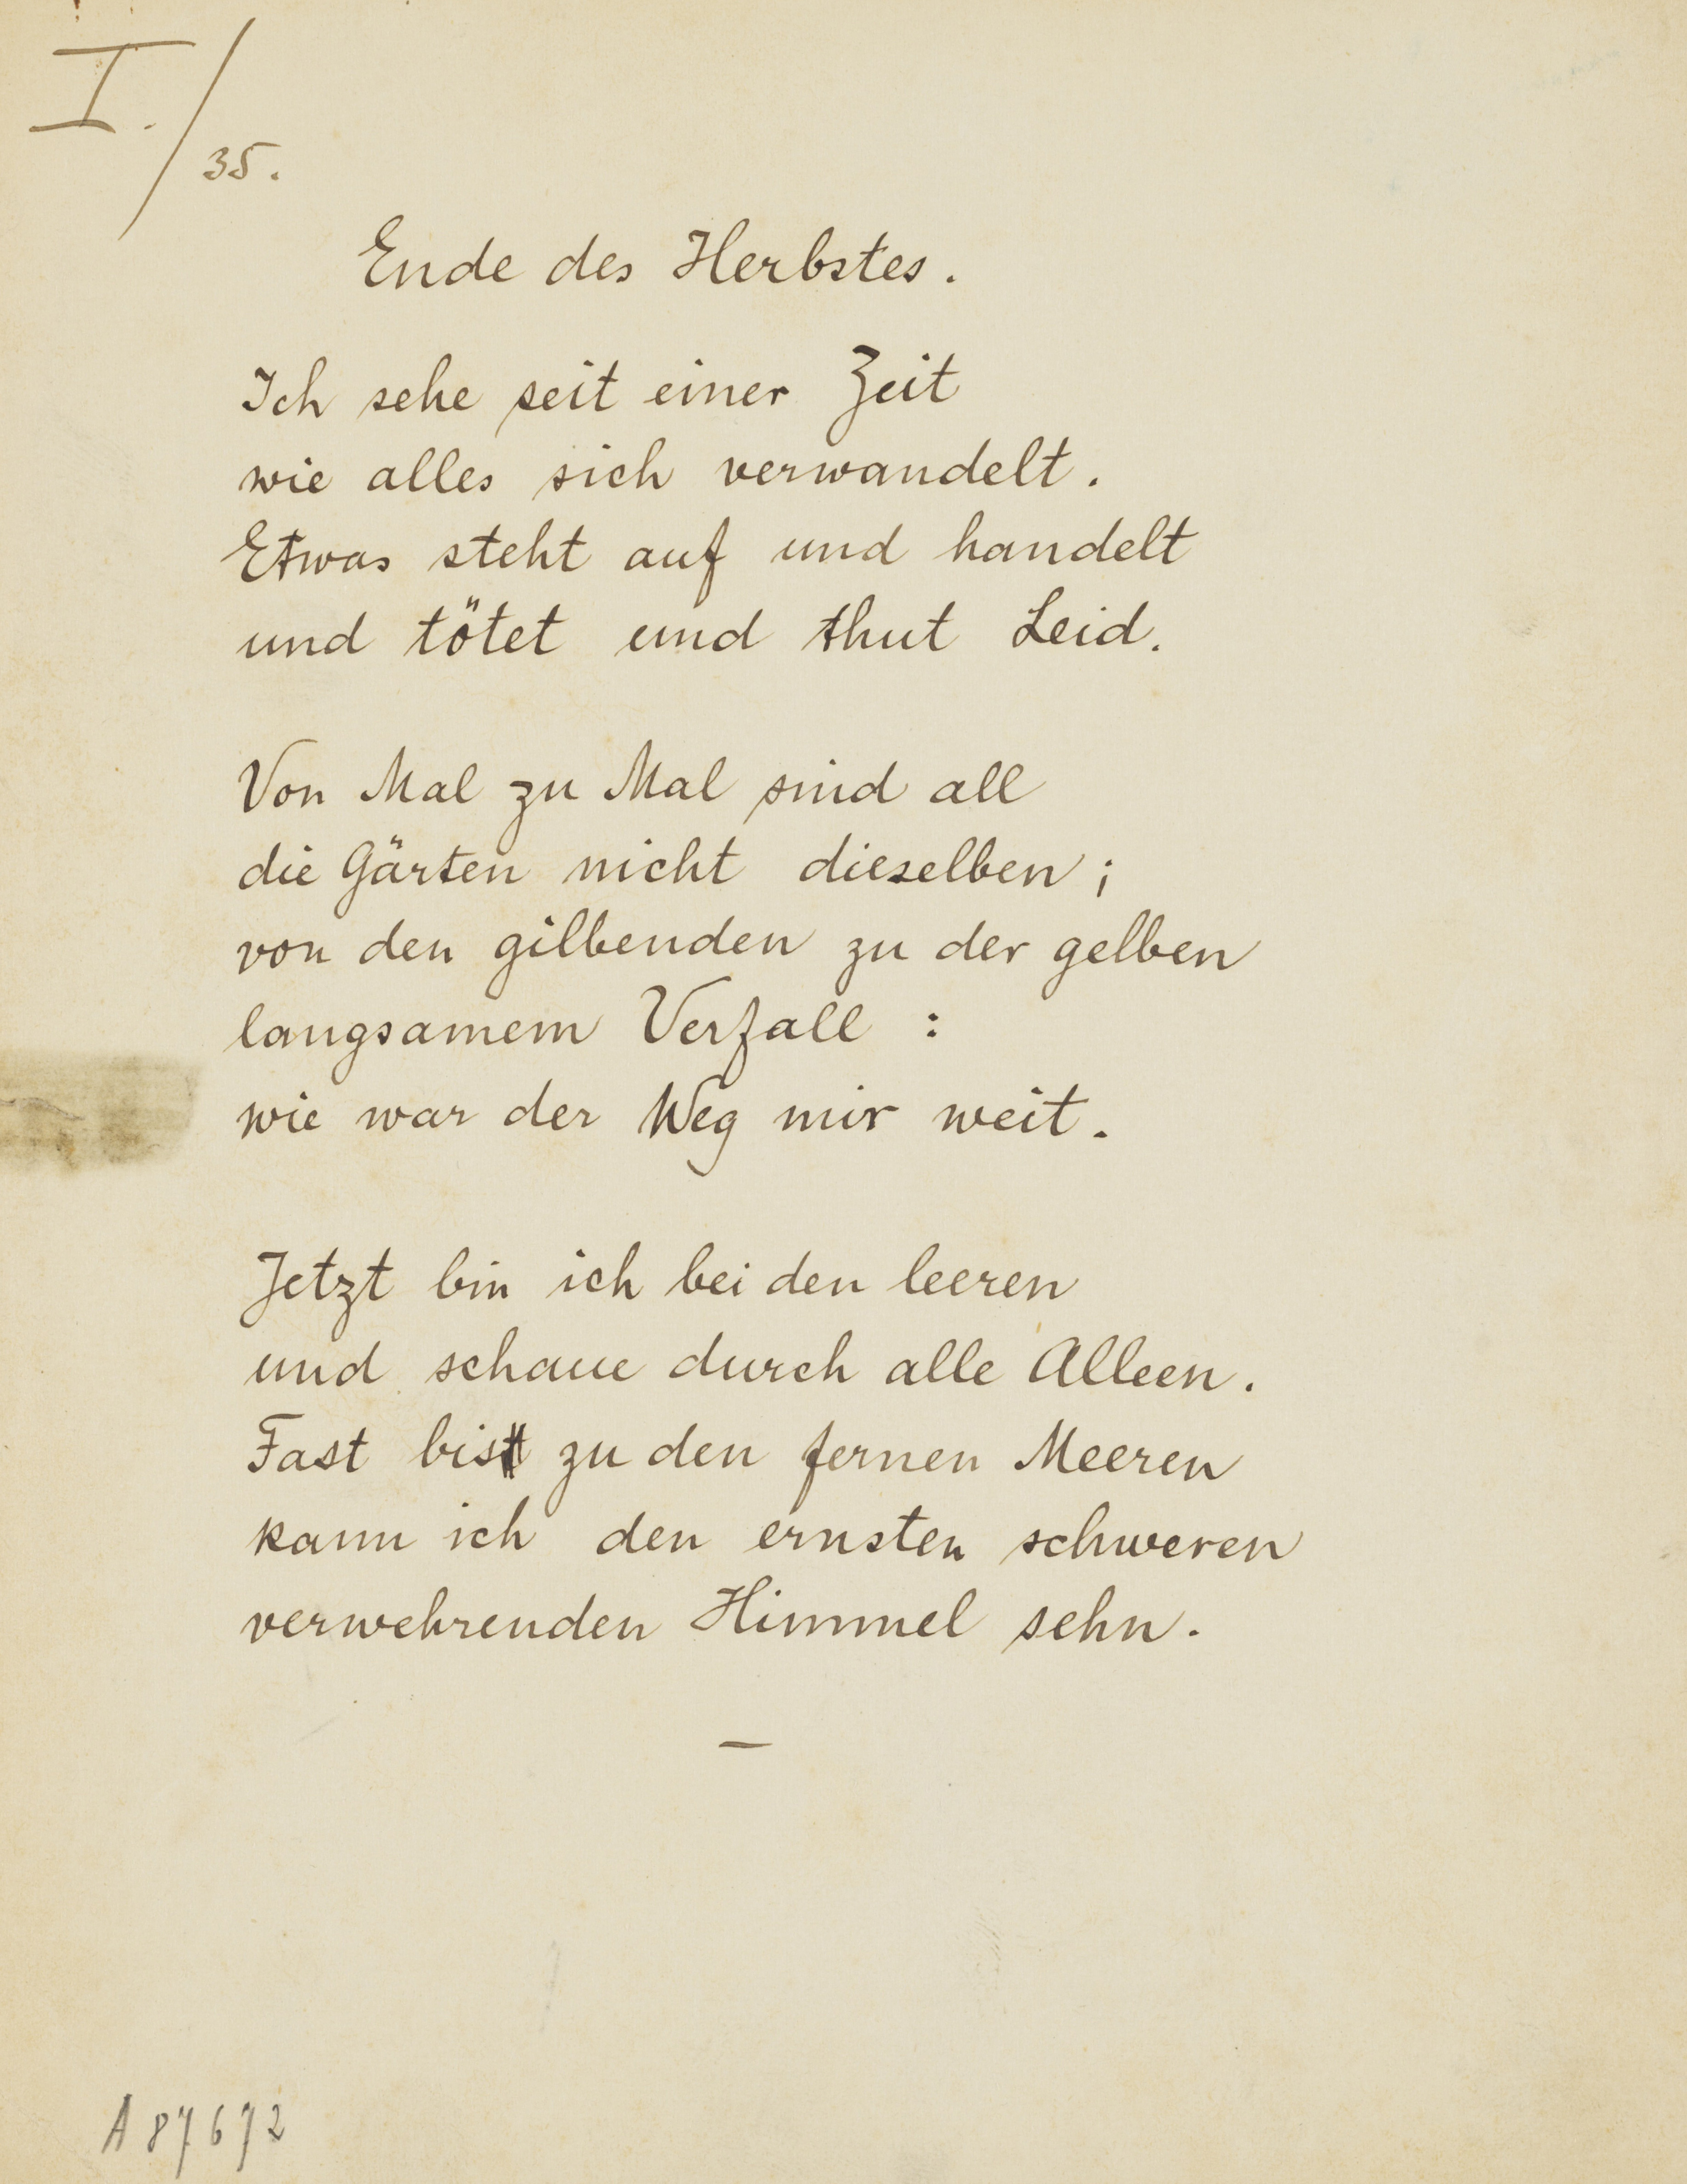 I./
35.
Ende des Herbstes.
Ich sehe seit einer Zeit
wie alles sich verwandelt.
Etwas steht auf und handelt
und tötet und thut Leid.
Von Mal zu Mal sind all
die Gärten nicht dieselben;
von den gilbenden zu der gelben
langsamem Verfall :
wie war der Weg mir weit.
Jetzt bin ich bei den leeren
und schaue durch alle Alleen.
Fast bis zu den fernen Meeren
kann ich den ernsten schweren
verwehrenden Himmel sehn.
—
A 87672